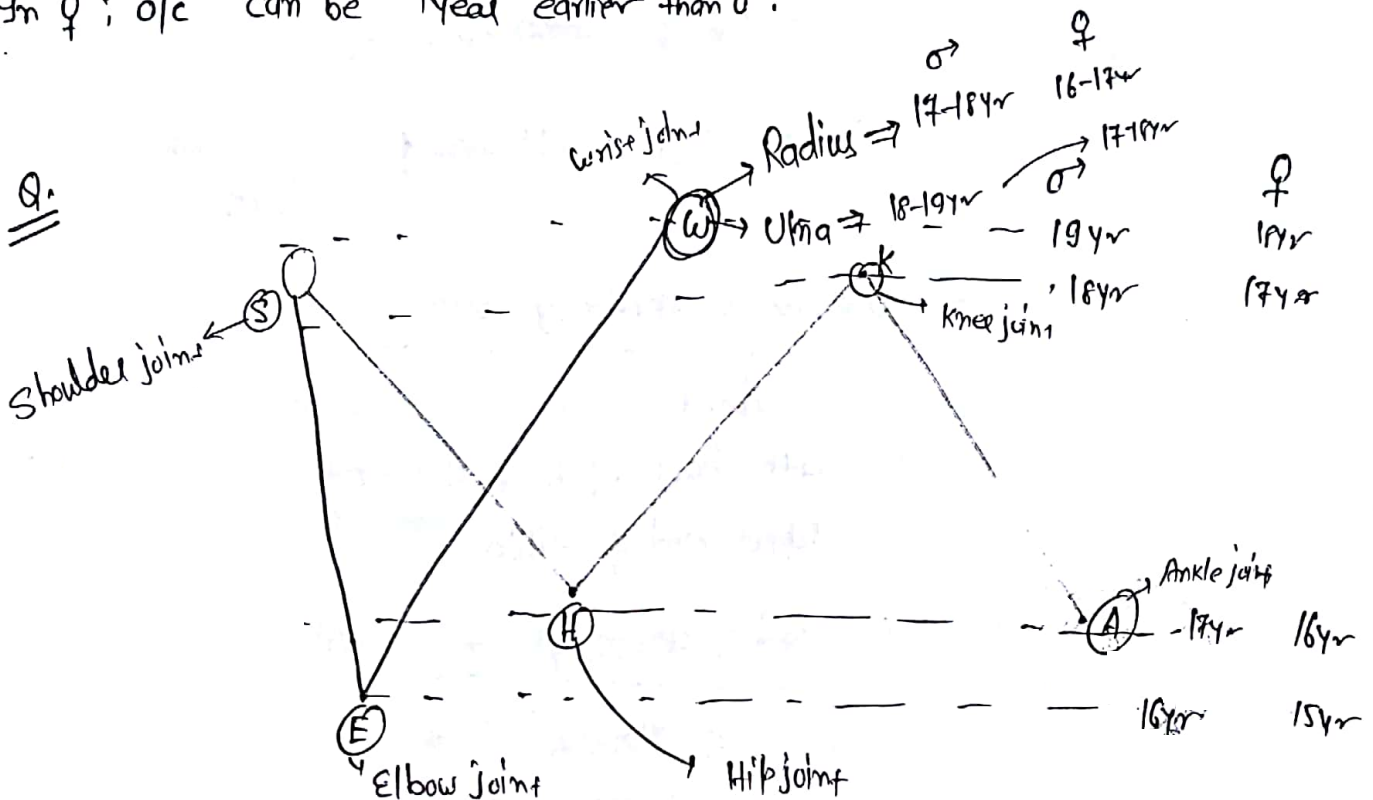 In ♀ ; o/c can be 1 year earlier than ♂.
♂ ♀
Q.
wrist joint
W → Radius ⇒ 17-18yr 16-17yr
→ Ulna ⇒ 18-19yr → 17-18yr
♂ ♀
19yr 18yr
K 18yr 17yr
Knee joint
S
Shoulder joint
Ankle joint
H A 17yr 16yr
E 16yr 15yr
Elbow joint Hip joint